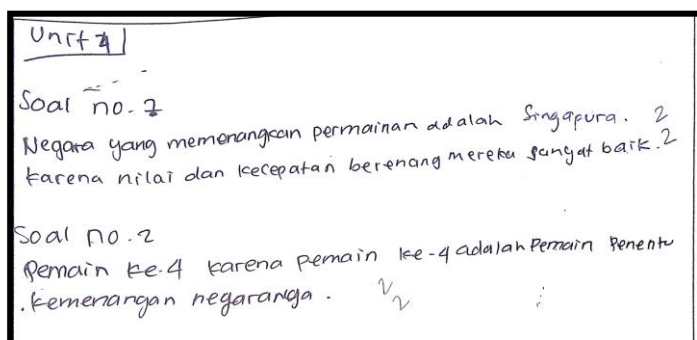 Unit 4
Soal no. 1
Negara yang memenangkan permainan adalah Singapura. 2
karena nilai dan kecepatan berenang mereka sangat baik. 2
Soal no. 2
Pemain ke. 4 karena pemain ke-4 adalah Pemain Penentu
. kemenangan negaranya . 2
2